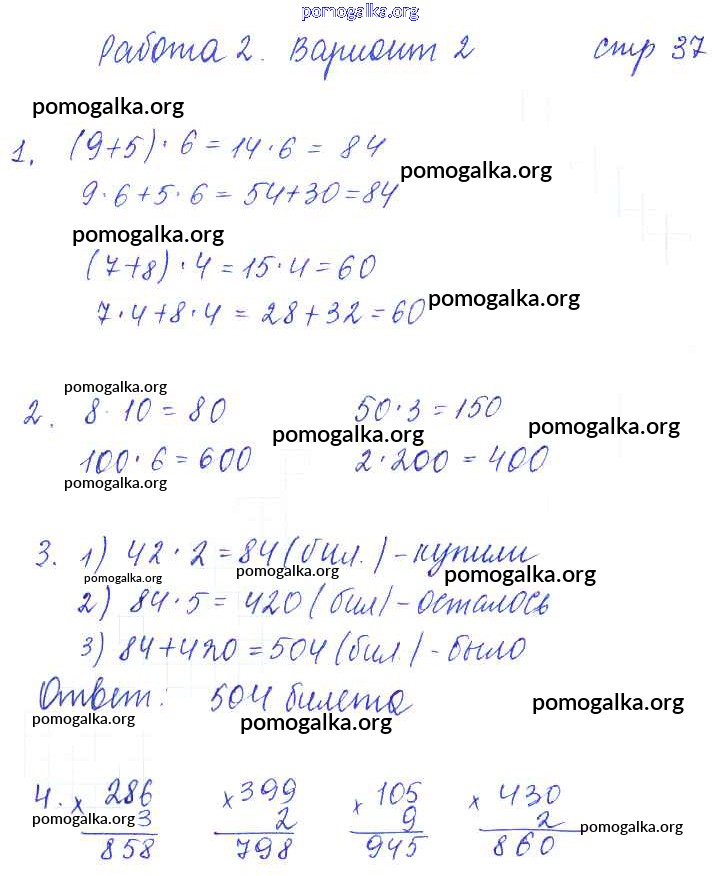 pomogalka.org
Работа 2. Вариант 2 стр 37
pomogalka.org
1. (9+5)·6=14·6= 84
pomogalka.org
9·6+5·6= 54+30=84
pomogalka.org
(7+8)·4=15·4=60
7·4+8·4 = 28+32=60 pomogalka.org
pomogalka.org
2. 8·10=80 50·3=150
pomogalka.org pomogalka.org
100·6=600 2·200=400
pomogalka.org
3. 1) 42·2=84(бил.)-купили
pomogalka.org pomogalka.org pomogalka.org
2) 84·5=420(бил)-осталось
3) 84+420=504(бил.)-было
Ответ: 504 билета
pomogalka.org pomogalka.org pomogalka.org
4. × 286 × 399 × 105 × 430
pomogalka.org 3 2 9 2 pomogalka.org
858 798 945 860